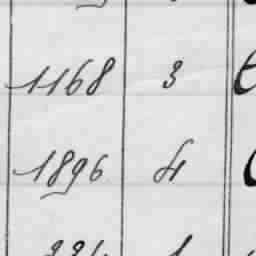 1168 3
1896 4